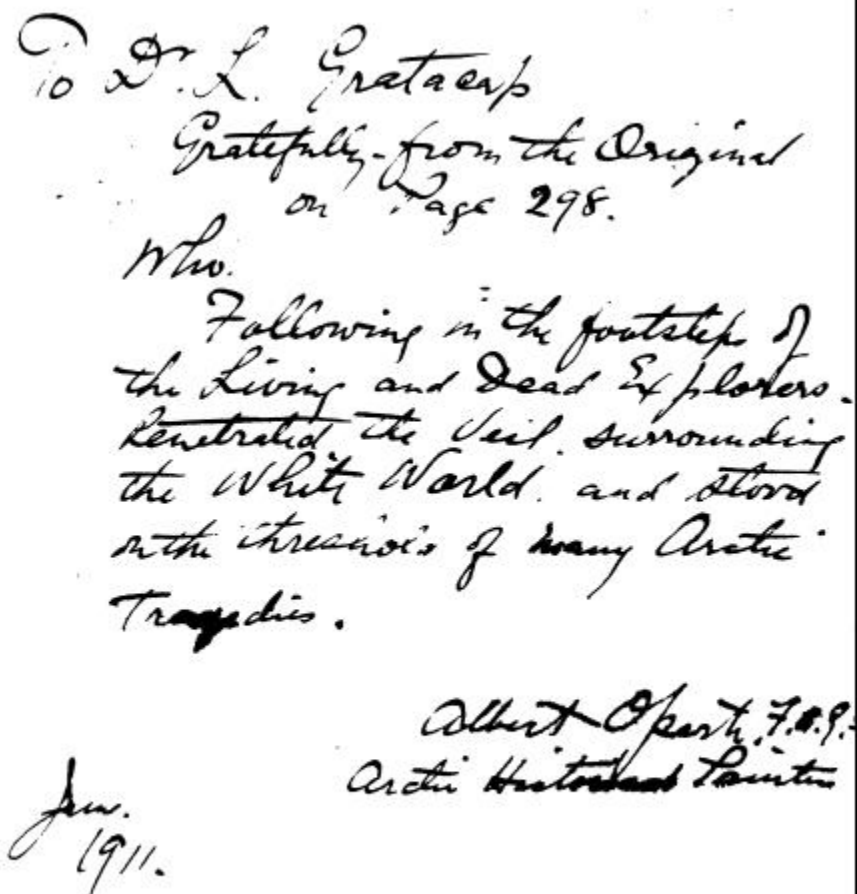 To Dr. L. Gratacap
Gratefully - from the Original
on Page 298.
Who.
Following in the footsteps of
the Living and Dead Explorers.
Penetrated the Veil. surrounding
the White World. and stood
on the threshold of many Arctic
Tragedies.
Albert Operti.
Arctic Historical Painter
Jan.
1911.